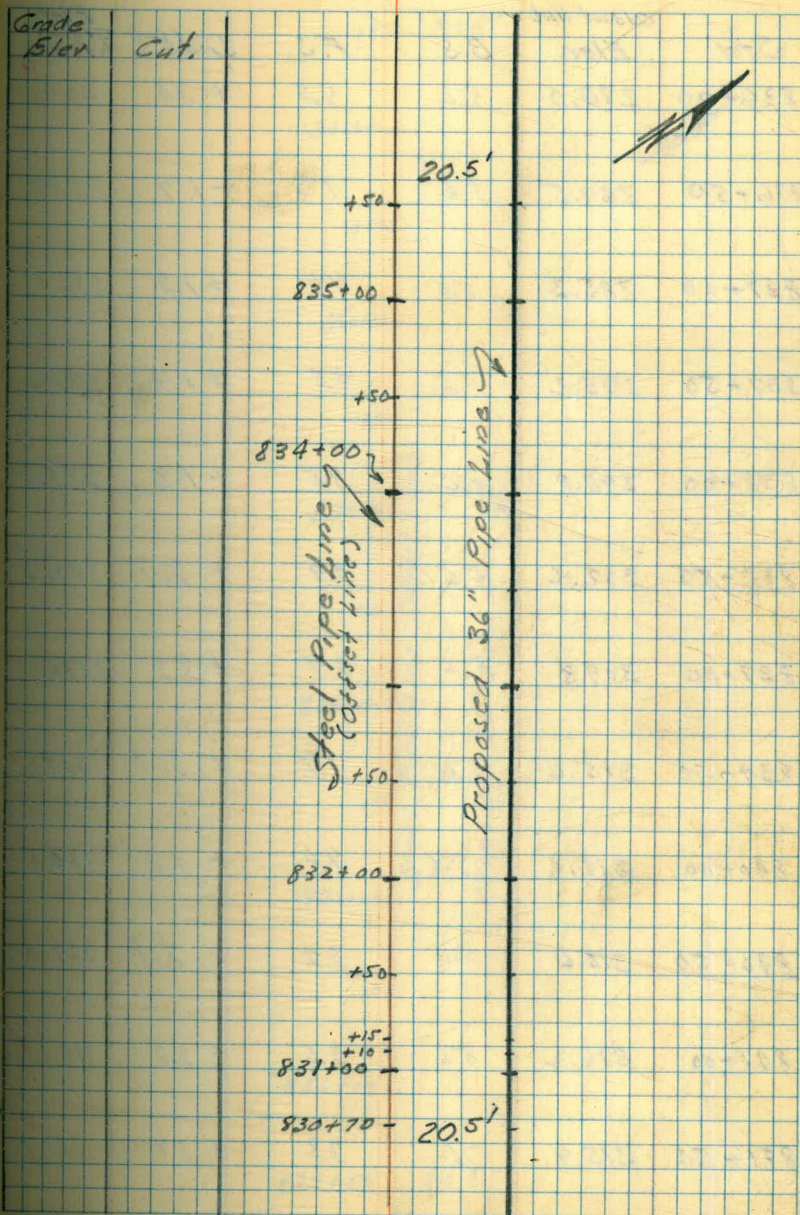 Grade
Elev.
Cut.
20.5'
+50
835+00
+50
834+00
Steel Pipe Line
(Offset Line)
Proposed 36" Pipe Line
+50
832+00
+50
+15
+10
831+00
830+70
20.5'
N